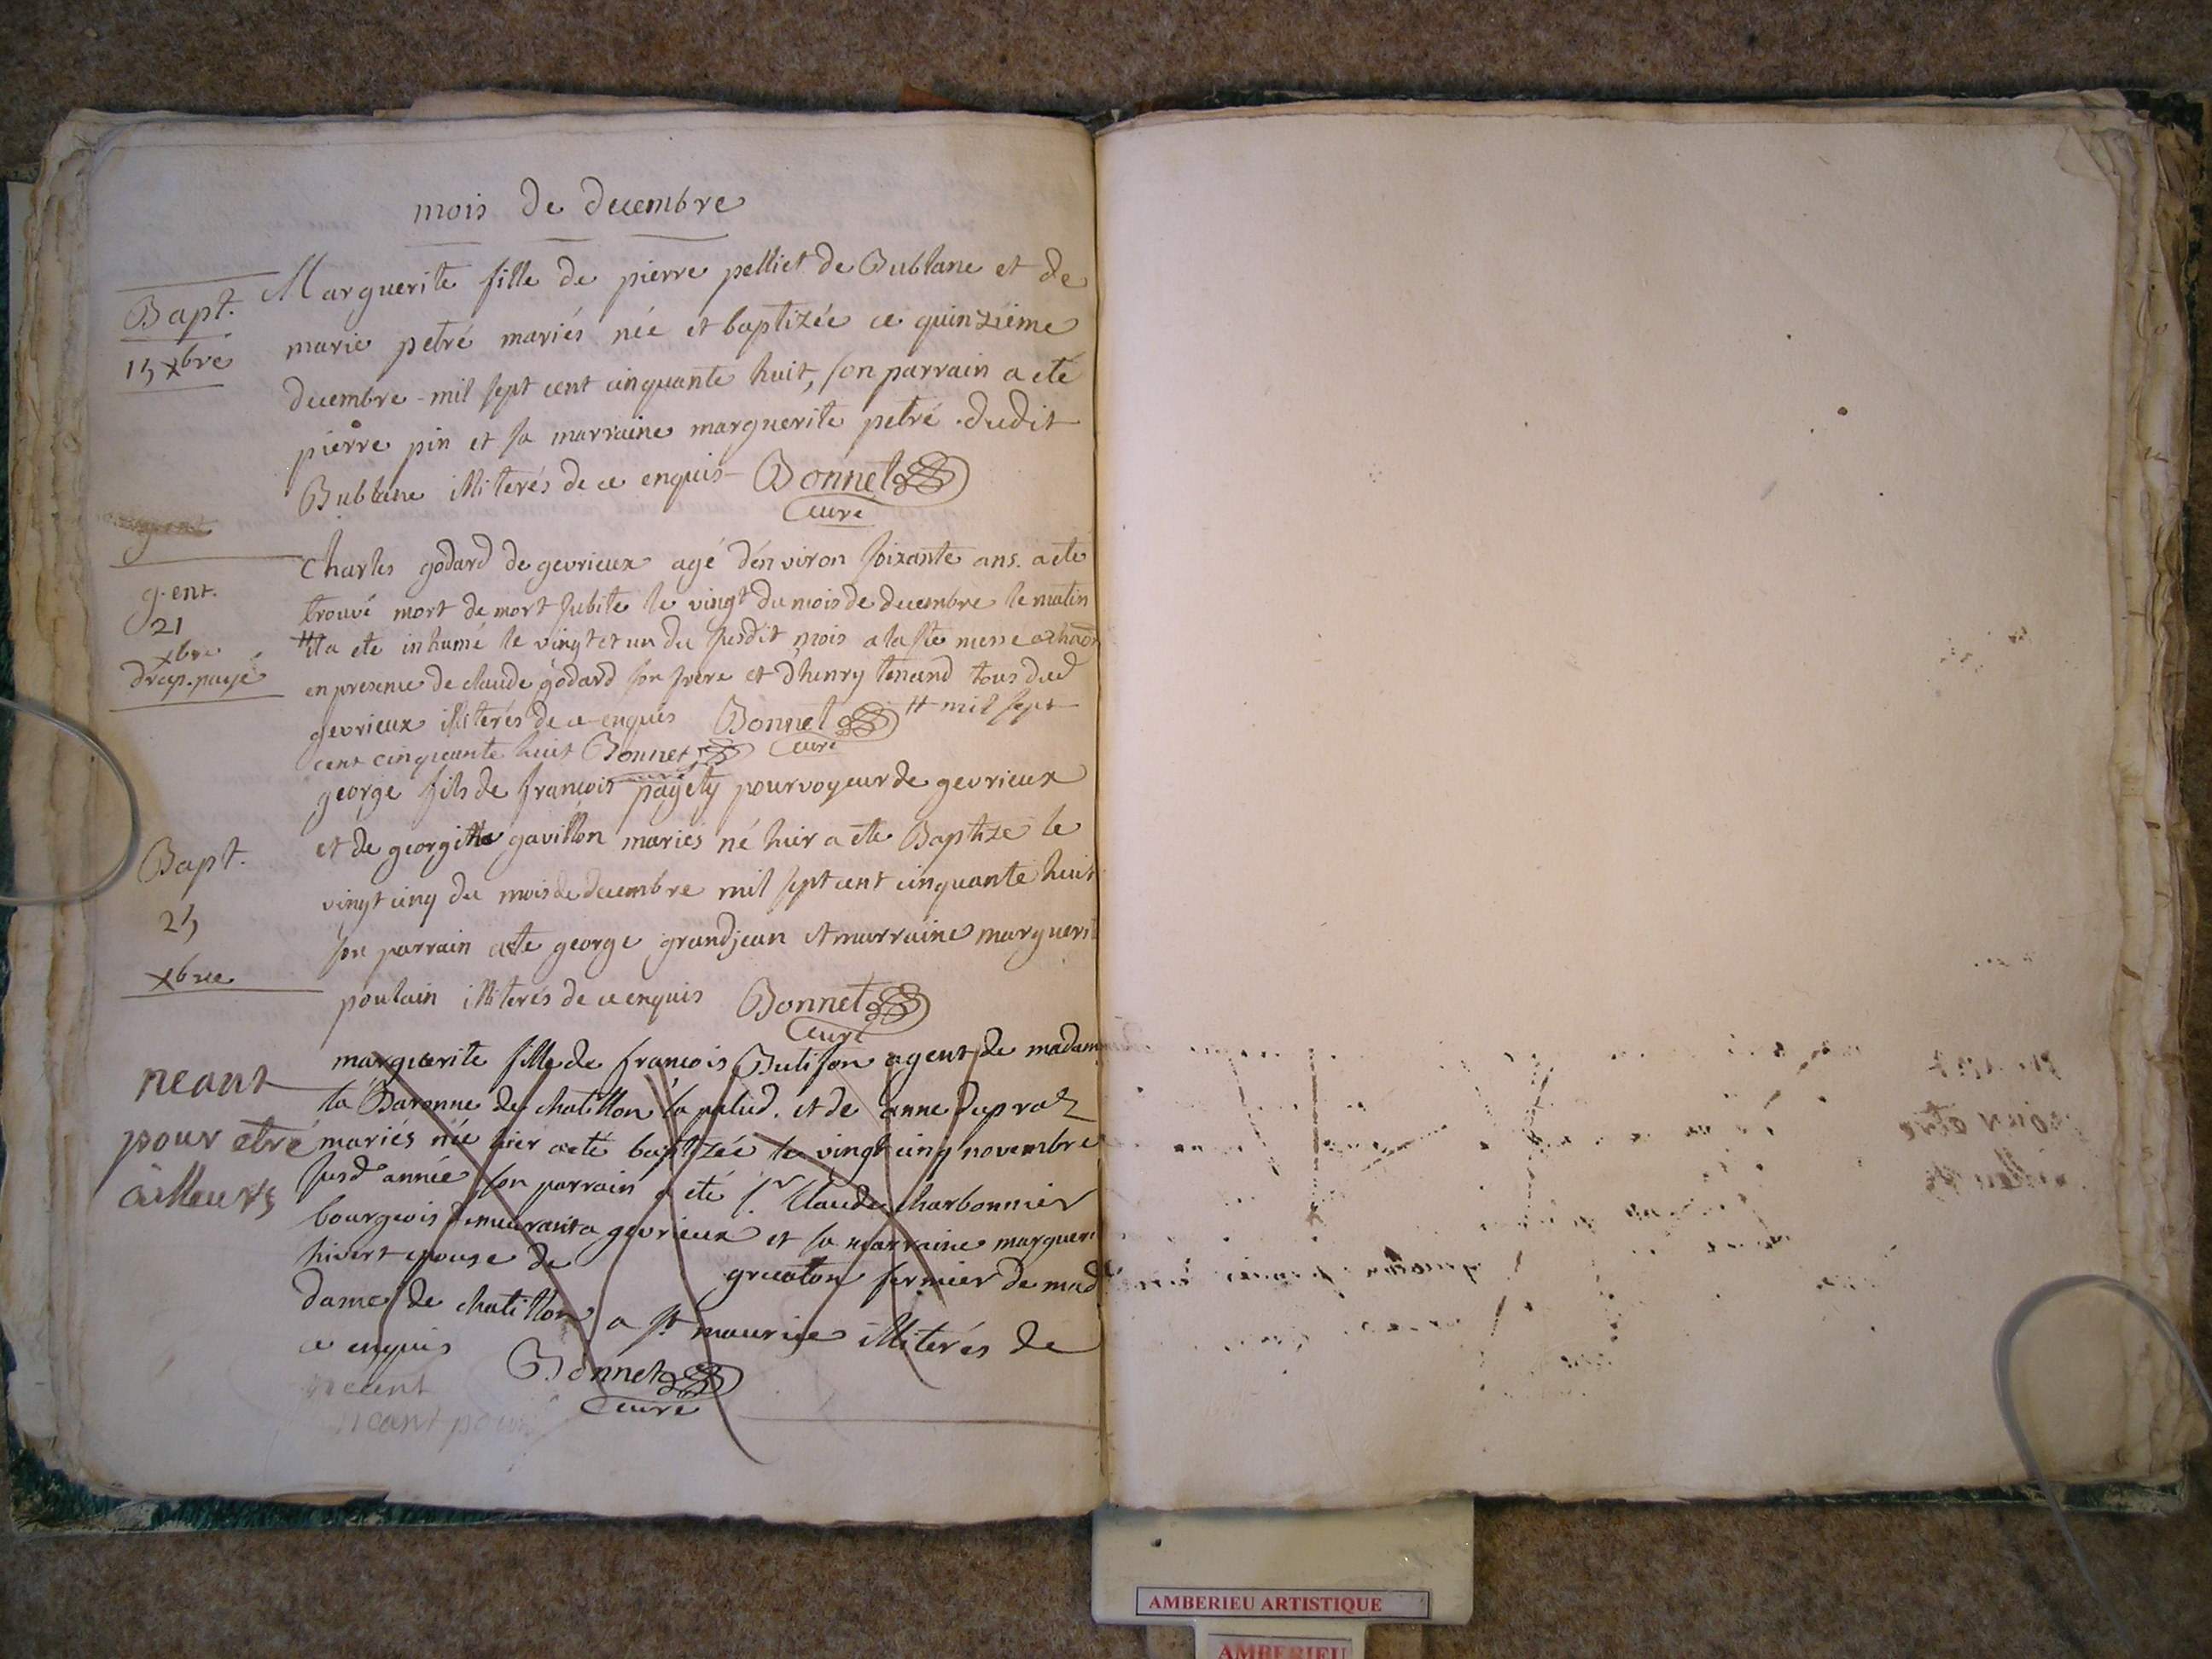 mois de decembre
Bapt.
15 xbre
Marguerite fille de pierre pelliet de Bublane et de
marie petré mariés née et baptizée ce quinzième
decembre mil sept cent cinquante huit, son parrain a eté
pierre pin et sa marraine marguerite petré dudit
Bublane illiterés de ce enquis Bonnet
Curé
g. ent.
21
xbre
drap. payé
Charles godard de gevrieux agé d'environ soixante ans. a eté
trouvé mort de mort subite le vingt du mois de decembre le matin
# il a eté inhumé le vingt et un du susdit mois a la ste messe
en presence de claude godard son frere et d'henry tenand tous dud
gevrieux illiterés de ce enquis Bonnet # mil sept
Curé
cent cinquante huit Bonnet
curé
Bapt.
25
xbre
george fils de francois payety pourvoyeur de gevrieux
et de georgitte gavillon mariés né hier a eté Baptizé le
vingt cinq du mois de decembre mil sept cent cinquante huit
son parrain a eté george grandjean et marraine marguerit
poulain illiterés de ce enquis Bonnet
Curé
neant
pour etre
ailleurs
marguerite fille de francois Butison agent de madam
la Baronne de chatillon la palud. et de anne dupraz
mariés née hier a eté baptizée le vingt cinq novembre
susd année son parrain a eté sr. Claude charbonnier
bourgeois demeurant a gevrieux et sa marraine margueri
hivert epouse de gruaton fermier de mad
dame de chatillon a st maurice illiterés de
ce enquis Bonnet
Curé
neant
neant pour
AMBERIEU ARTISTIQUE
AMBERIEU